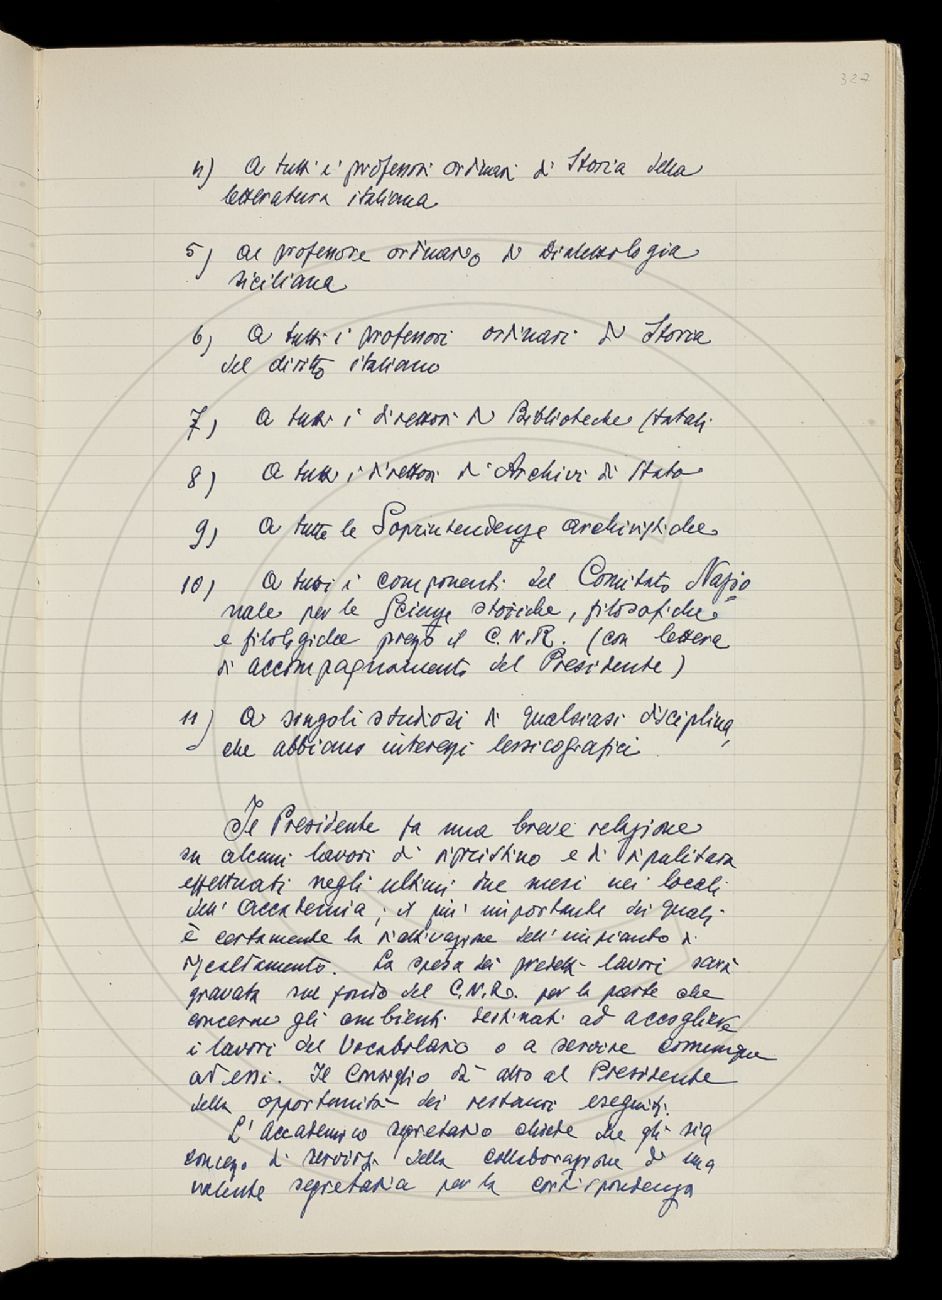 327
4) A tutti i professori ordinari di Storia della
letteratura italiana
5) Al professore ordinario di Dialettologia
siciliana
6) A tutti i professori ordinari di Storia
del diritto italiano
7) A tutti i direttori di Biblioteche statali
8) A tutti i direttori di Archivi di Stato
9) A tutte le Soprintendenze archivistiche
10) A tutti i componenti del Comitato Nazio
nale per le Scienze storiche, filosofiche
e filologiche presso il C.N.R. (con lettera
di accompagnamento del Presidente)
11) A singoli studiosi di qualsiasi disciplina,
che abbiano interessi lessicografici.
Il Presidente fa una breve relazione
su alcuni lavori di ripristino e di ripulitura
effettuati negli ultimi due mesi nei locali
dell'Accademia; il più importante dei quali
è certamente la riattivazione dell'impianto di
riscaldamento. La spesa dei predetti lavori sarà
gravata sul fondo del C.N.R. per la parte che
concerne gli ambienti destinati ad accogliere
i lavori del Vocabolario o a servire comunque
ad essi. Il Consiglio dà atto al Presidente
della opportunità dei restauri eseguiti.
L'Accademico segretario chiede che gli sia
concesso di servirsi della collaborazione di una
valente segretaria per la corrispondenza